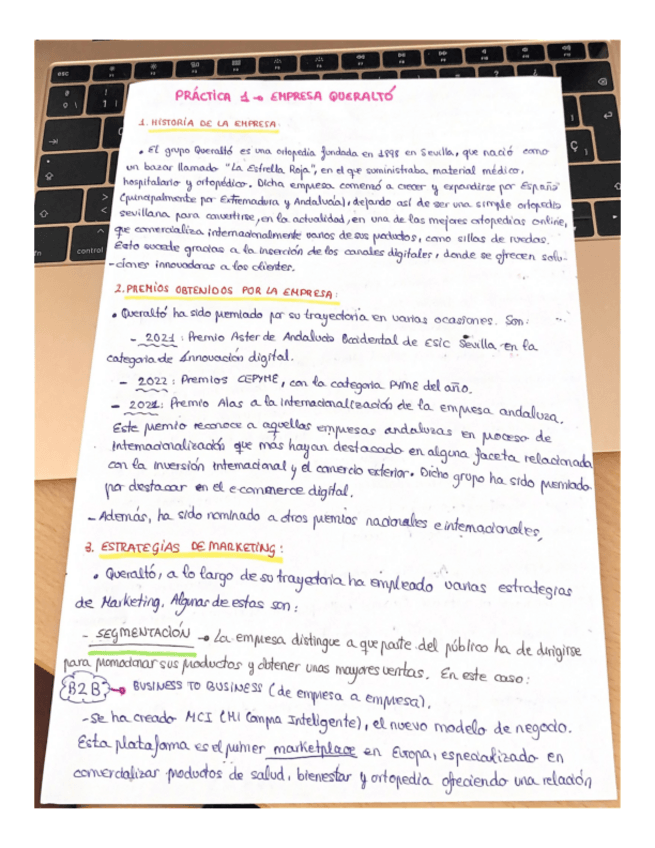 PRÁCTICA 1 → EMPRESA QUERALTÓ
1. HISTORIA DE LA EMPRESA
• El grupo Queraltó es una ortopedia fundada en 1898 en Sevilla, que nació como
un bazar llamado "La Estrella Roja", en el que suministraba material médico,
hospitalario y ortopédico. Dicha empresa comenzó a crecer y expandirse por España
(principalmente por Extremadura y Andalucía), dejando así de ser una simple ortopedia
sevillana para convertirse, en la actualidad, en una de las mejores ortopedias online,
que comercializa internacionalmente varios de sus productos, como sillas de ruedas.
Esto sucede gracias a la inserción de los canales digitales, donde se ofrecen solu-
-ciones innovadoras a los clientes.
2. PREMIOS OBTENIDOS POR LA EMPRESA:
• Queraltó ha sido premiado por su trayectoria en varias ocasiones. Son:
- 2021: Premio Aster de Andalucía Occidental de ESIC Sevilla en la
categoría de Innovación digital.
- 2022: Premios CEPYME, con la categoría PYME del año.
- 2021: Premio Alas a la internacionalización de la empresa andaluza.
Este premio reconoce a aquellas empresas andaluzas en proceso de
internacionalización que más hayan destacado en alguna faceta relacionada
con la inversión internacional y el comercio exterior. Dicho grupo ha sido premiado
por destacar en el e-commerce digital.
- Además, ha sido nominado a otros premios nacionales e internacionales.
3. ESTRATEGIAS DE MARKETING:
• Queraltó, a lo largo de su trayectoria ha empleado varias estrategias
de Marketing. Algunas de estas son:
- SEGMENTACIÓN → La empresa distingue a que parte del público ha de dirigirse
para promocionar sus productos y obtener unas mayores ventas. En este caso:
B2B → BUSINESS TO BUSINESS (de empresa a empresa).
- Se ha creado MCI (Mi Compra Inteligente), el nuevo modelo de negocio.
Esta plataforma es el primer marketplace en Europa, especializado en
comercializar productos de salud, bienestar y ortopedia ofreciendo una relación